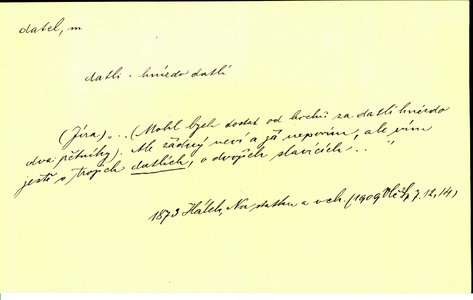 datel, m.
datli - hnízdo datlí
(Jíra) „... (Mohl bych dostat od hochů za datlí hnízdo
dva pětníky). Ale žádný neví a já nepovím, ale vím
ještě o trojích datlích, o dvojích slavících ... "
1873 Hálek, Na statku a v ch. (1909, 7. 12, 14)